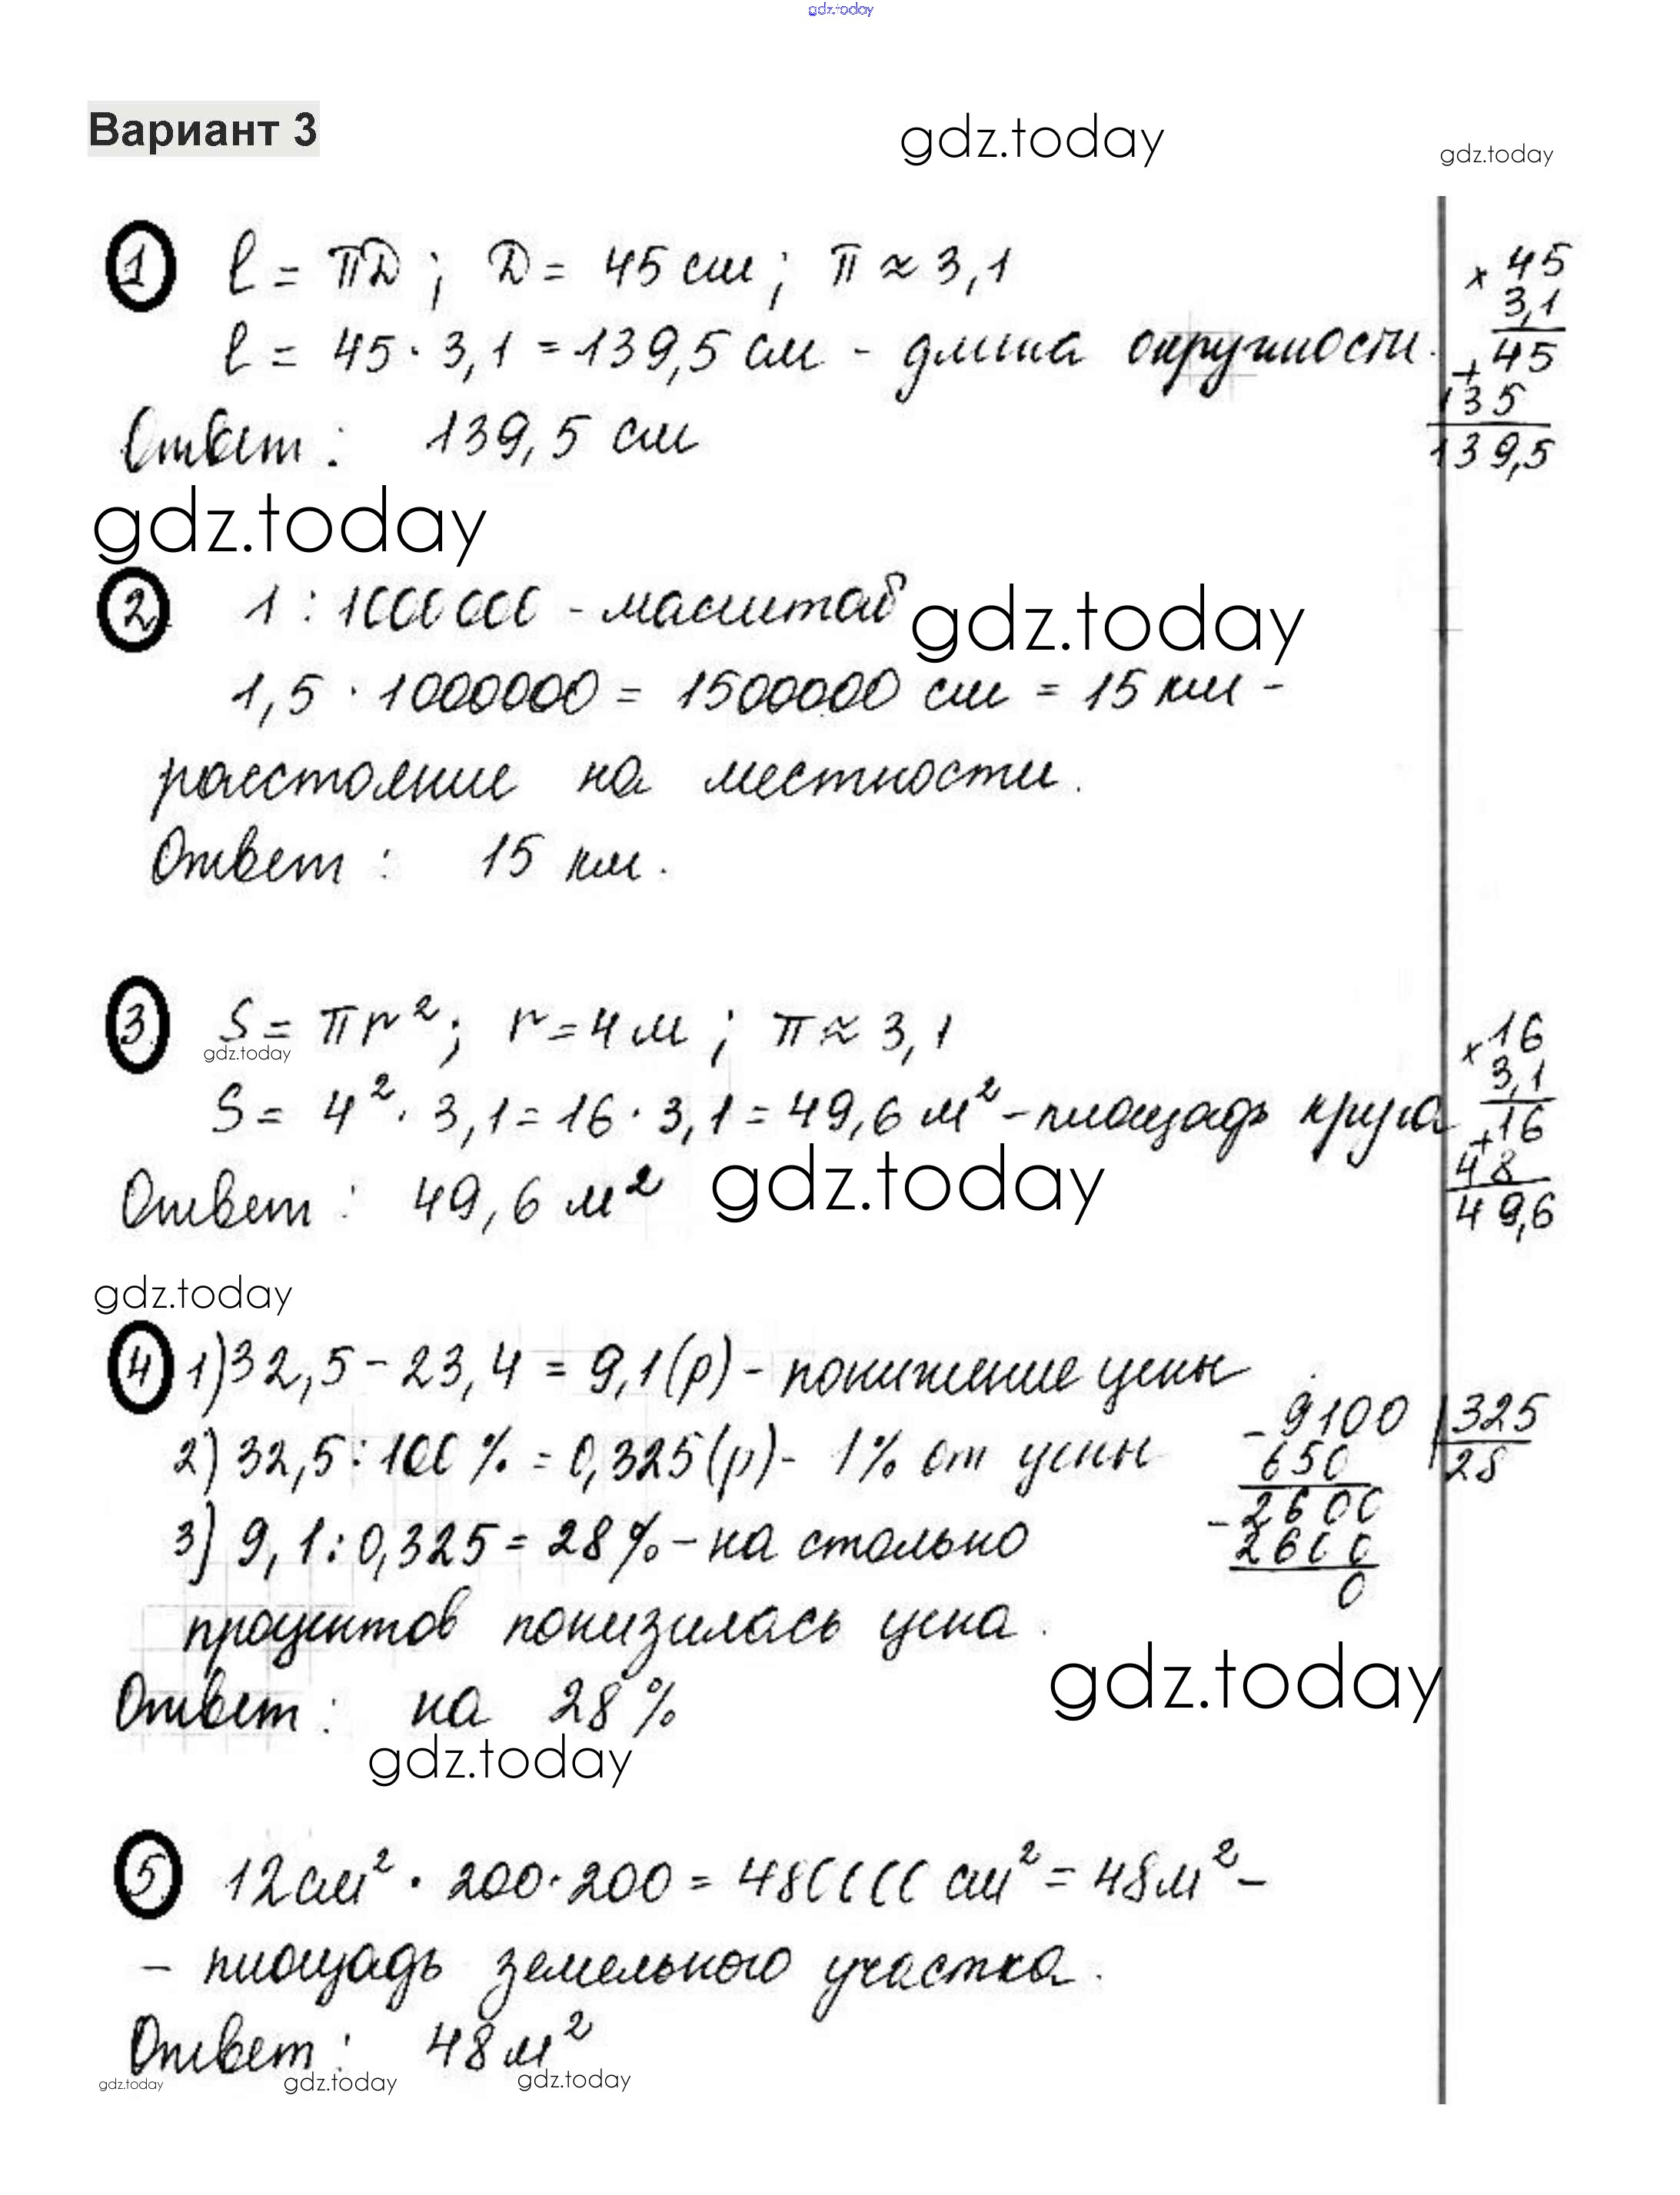 gdz.today
Вариант 3
gdz.today
gdz.today
1 l = πD ; D = 45 см ; π ≈ 3,1
l = 45 · 3,1 = 139,5 см - длина окружности.
Ответ : 139,5 см
× 45
3,1
+ 45
135
139,5
gdz.today
2 1 : 1000000 - масштаб
gdz.today
1,5 · 1000000 = 1500000 см = 15 км -
расстояние на местности.
Ответ : 15 км.
3 S = πr² ; r = 4 м ; π ≈ 3,1
gdz.today
S = 4² · 3,1 = 16 · 3,1 = 49,6 м² - площадь круга
Ответ : 49,6 м²
× 16
3,1
+ 16
48
49,6
gdz.today
gdz.today
4 1) 32,5 - 23,4 = 9,1 (р) - понижение цены
2) 32,5 : 100 % = 0,325 (р) - 1% от цены
3) 9,1 : 0,325 = 28 % - на столько
процентов понизилась цена.
Ответ : на 28 %
- 9100 | 325
650 28
- 2600
2600
0
gdz.today
gdz.today
5 12 см² · 200 · 200 = 480000 см² = 48 м² -
- площадь земельного участка.
Ответ : 48 м²
gdz.today
gdz.today
gdz.today